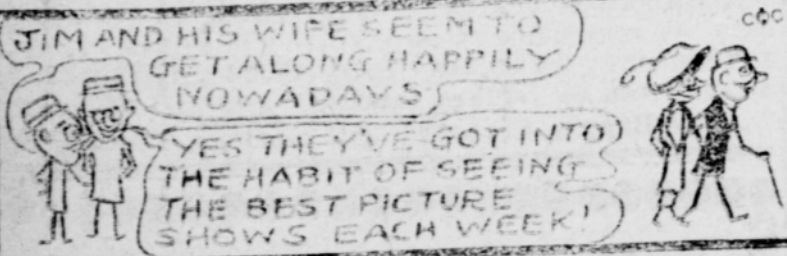 JIM AND HIS WIFE SEEM TO
GET ALONG HAPPILY
NOWADAYS,
YES THEY'VE GOT INTO
THE HABIT OF SEEING
THE BEST PICTURE
SHOWS EACH WEEK!